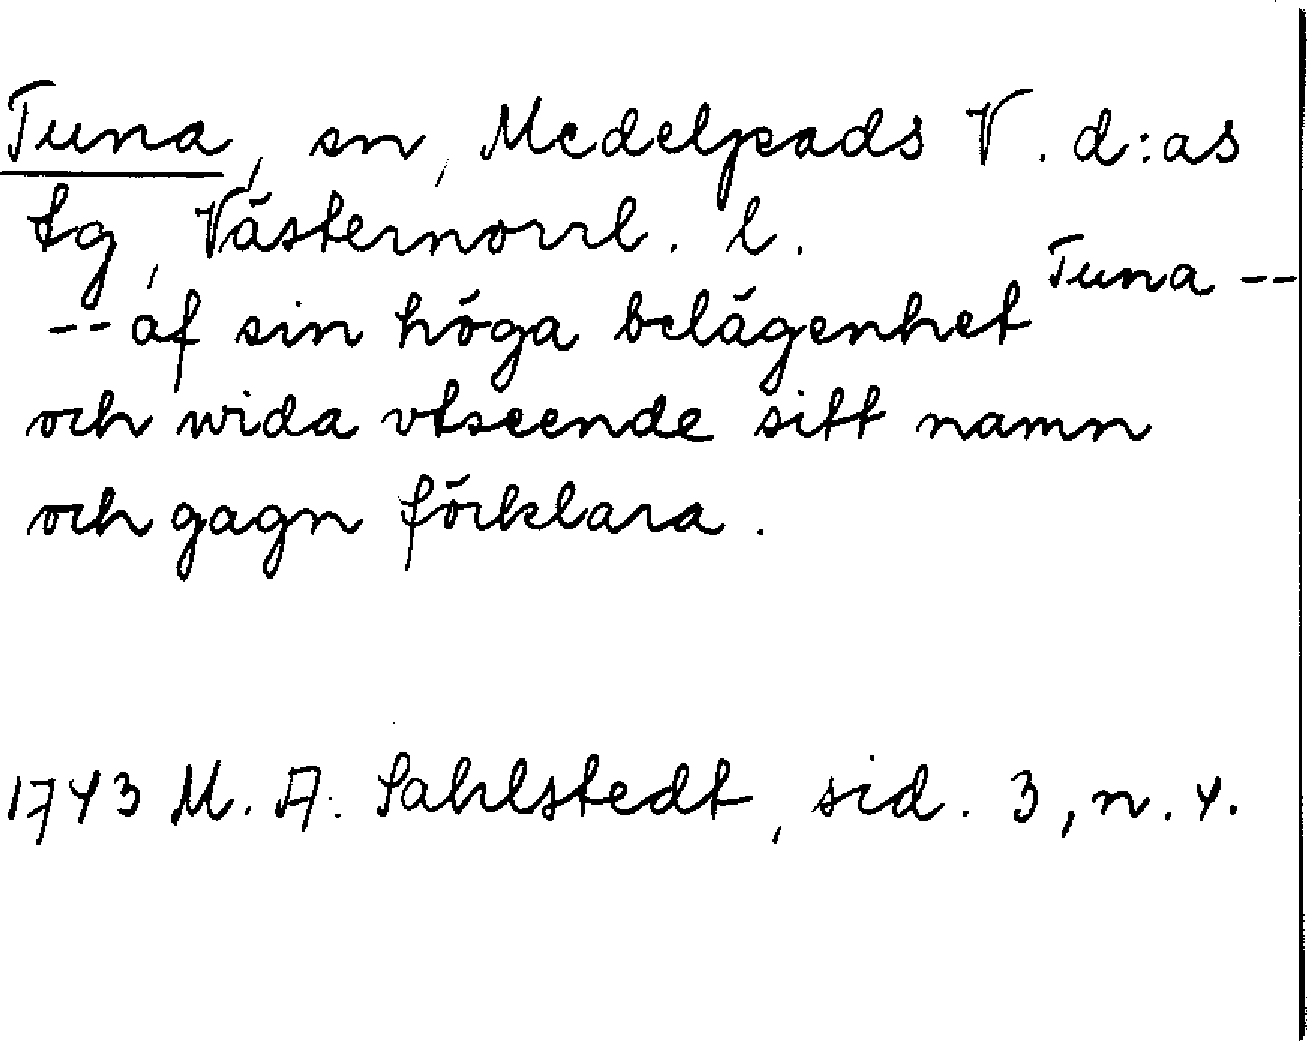 Tuna, sn, Medelpads V. d:as
tg, Västernorrl. l.
Tuna --
-- af sin höga belägenhet
och wida vtseende sitt namn
och gagn förklara.
1743 M. A. Sahlstedt, sid. 3, n. 4.